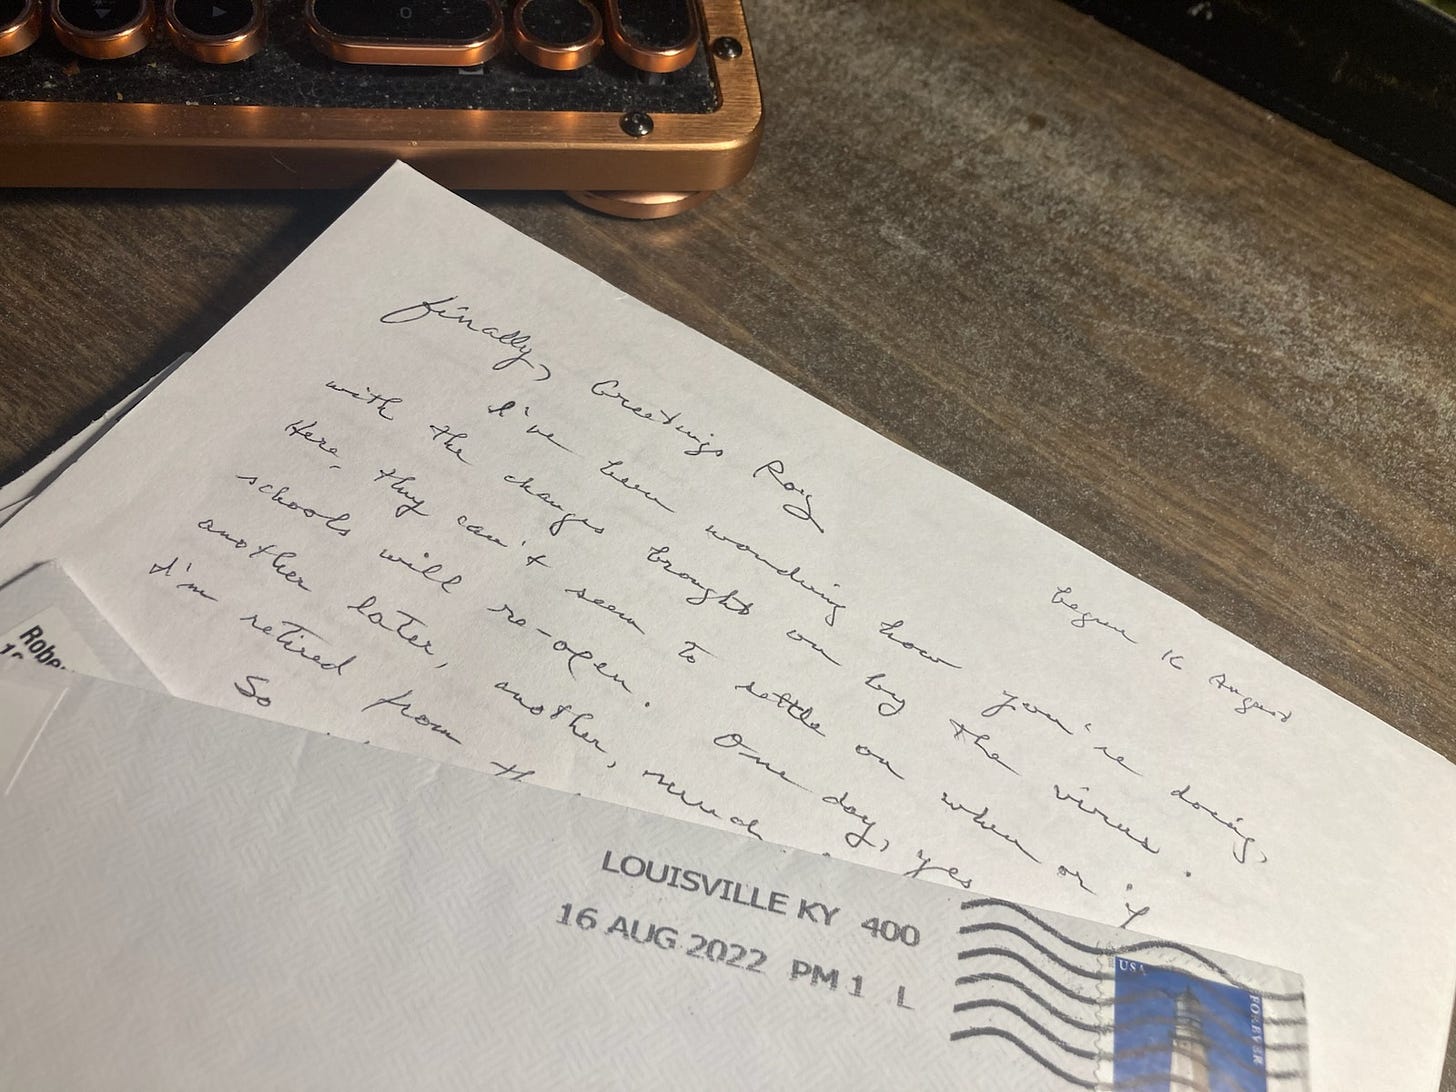 0
finally, Greetings Roy
begun 16 August
I've been wondering how you're doing,
with the changes brought on by the virus.
Here, they can't seem to settle on when or if
schools will re-open. One day, yes
another later, another,
I'm retired from
So
Robe
LOUISVILLE KY 400
16 AUG 2022 PM 1 L
USA
FOREVER